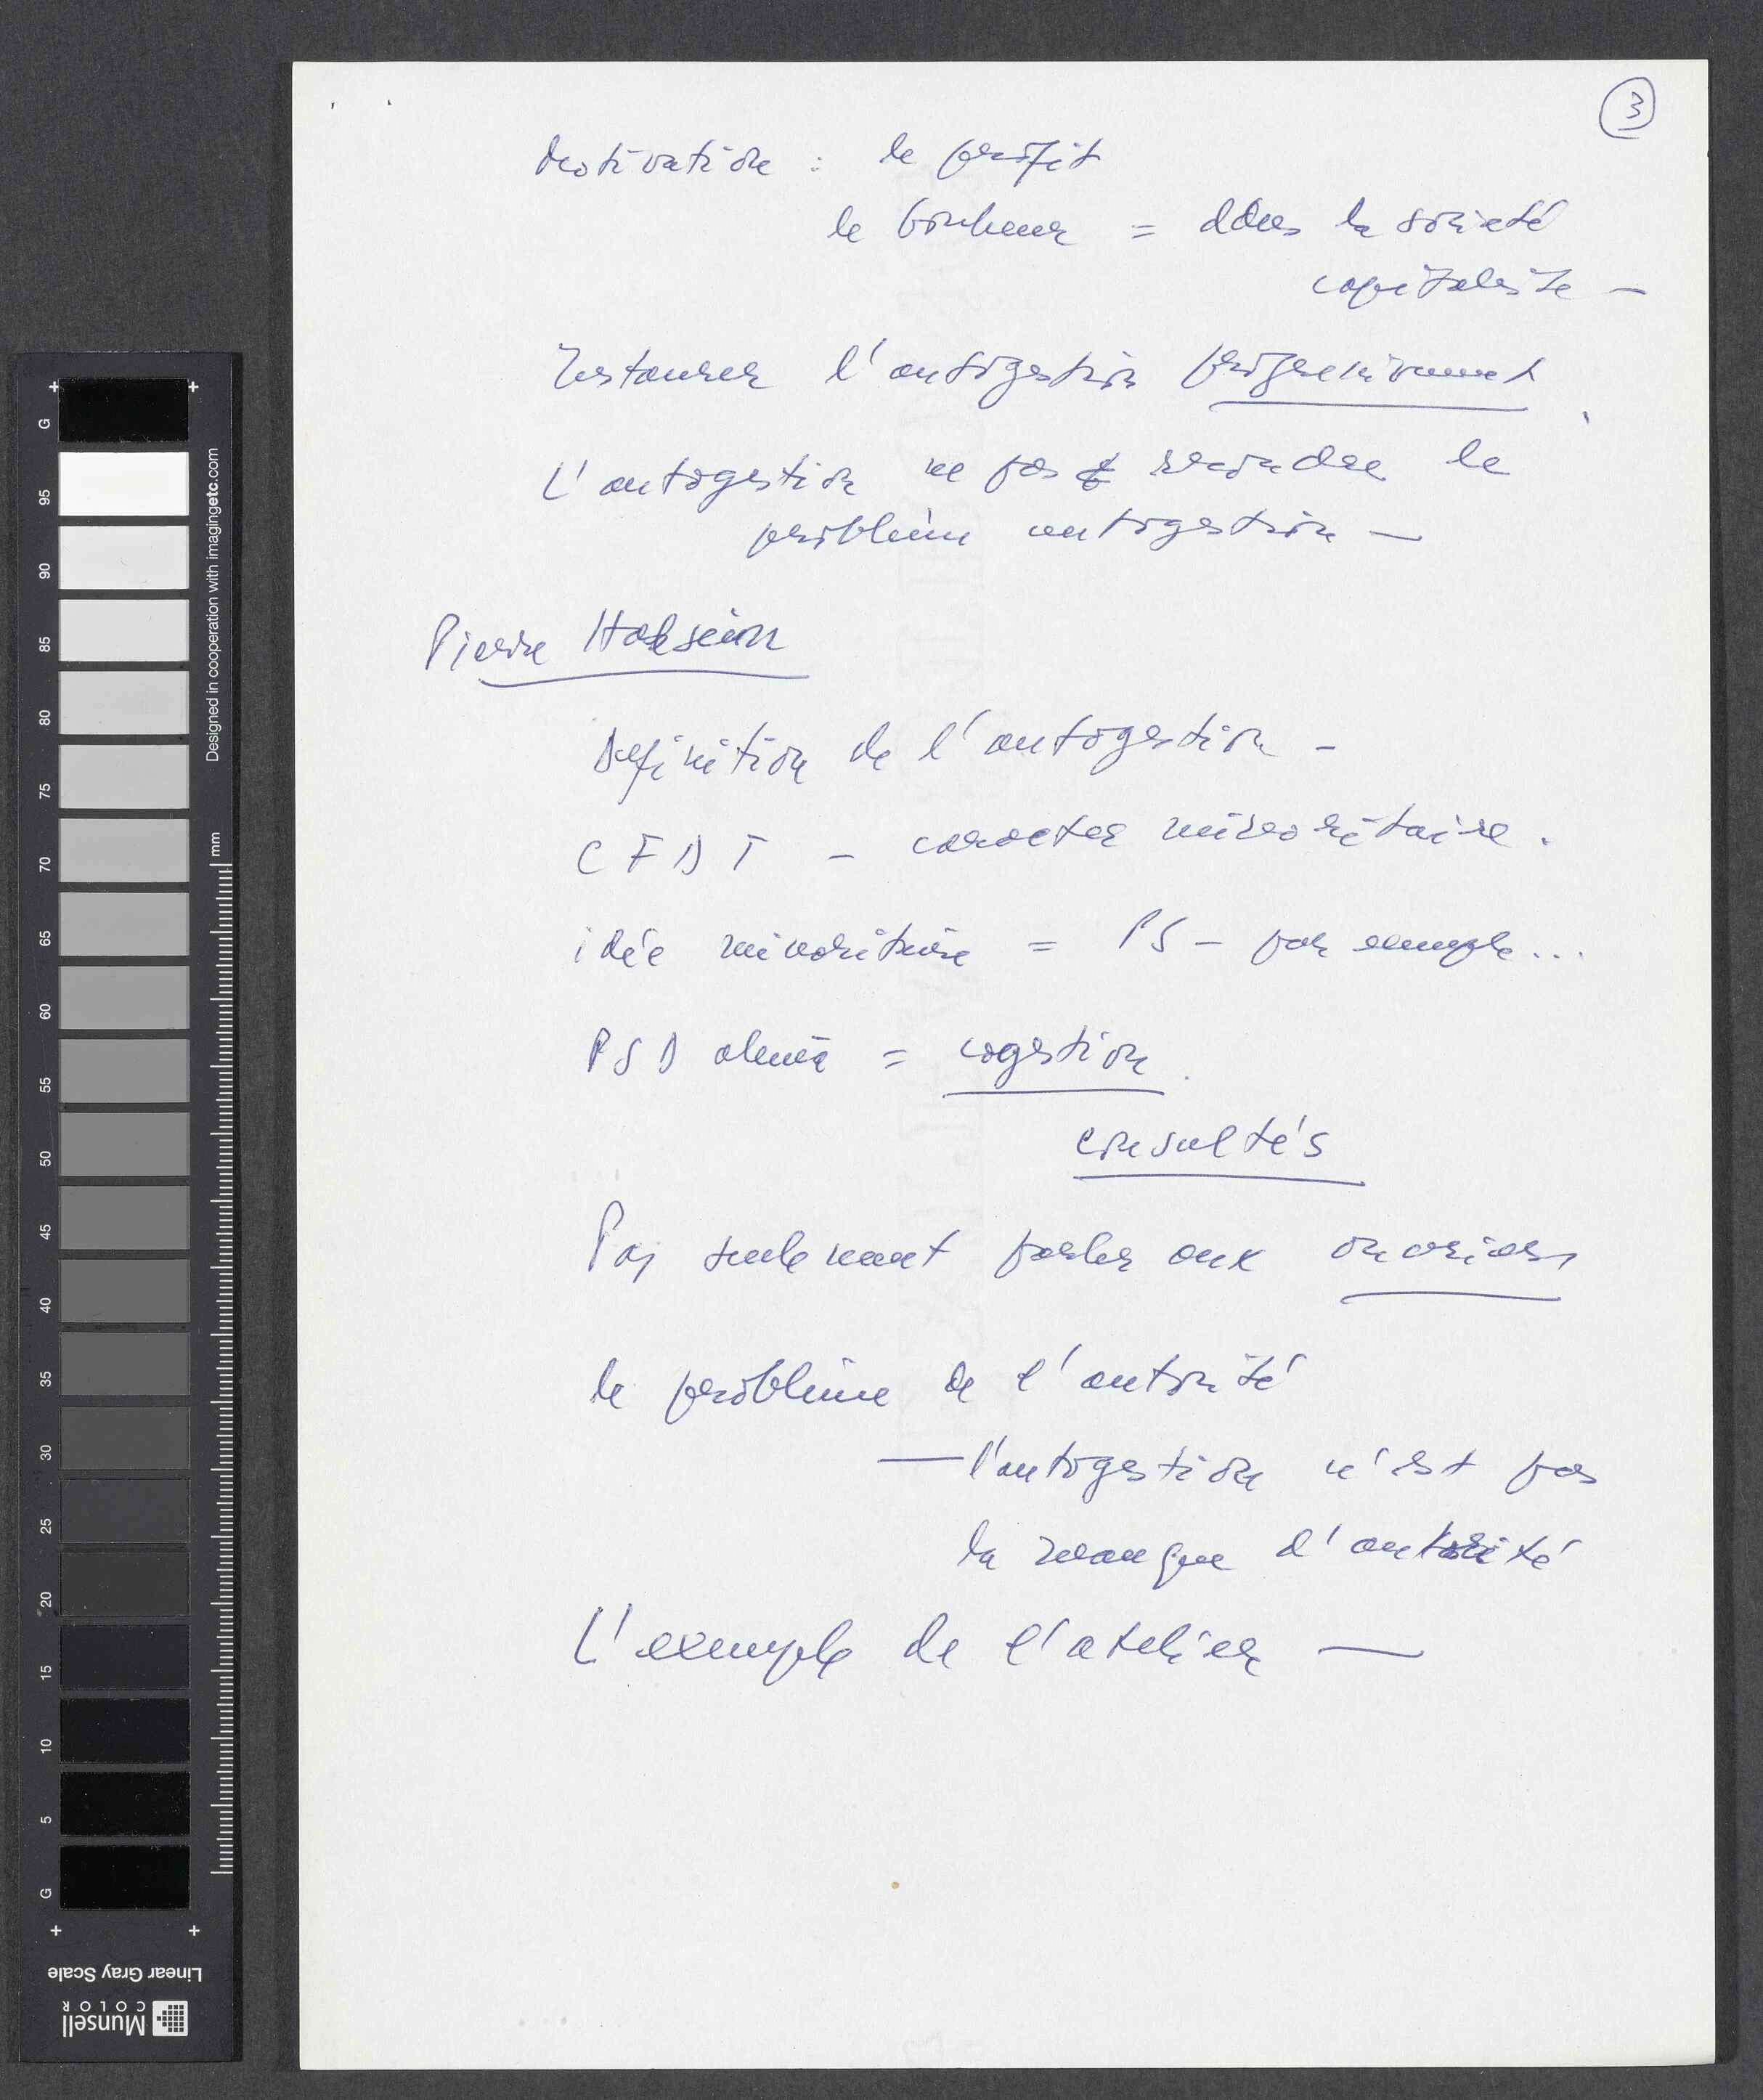 3
Motivation : le profit
le bonheur = ddans la société
capitaliste —
Instaurer l'autogestion progressivement
L'autogestion ne pas résoudre le
problème autogestion —
Pierre
Définition de l'autogestion -
CFDT - caracter minoritaire.
idée minoritaire = PS - par exemple...
PSD = cogestion
consultés
Pas seulement parler aux ouvriers
le problème de l'autorité
— l'autogestion n'est pas
la manque d'autorité
L'exemple de l'atelier —
G
95
90
85
80
75
70
65
60
55
50
45
40
35
30
25
20
15
10
5
G
Designed in cooperation with imagingetc.com
mm
Linear Gray Scale
Munsell
COLOR